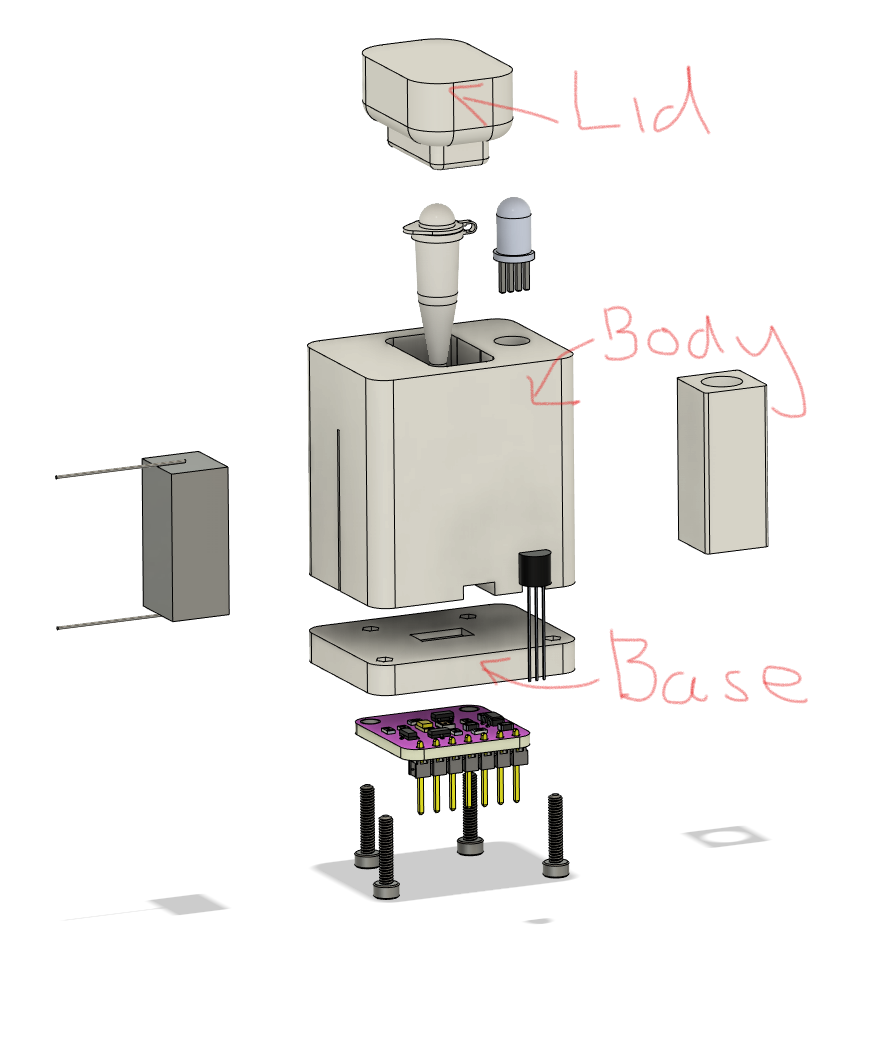 Lid
Body
Base